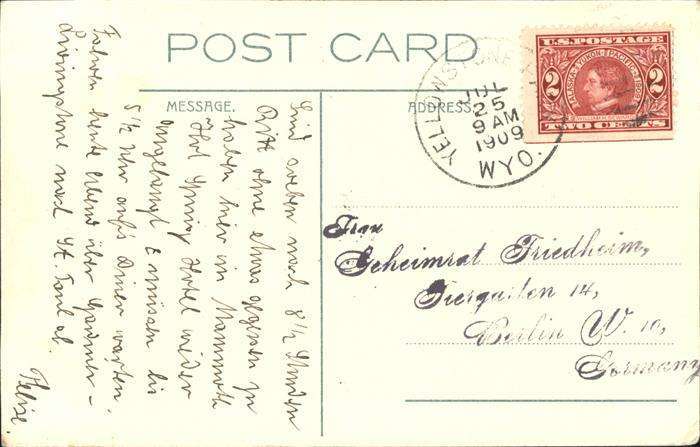 POST CARD
MESSAGE.
ADDRESS.
Sind soeben nach 8½ Stunden
Ritt ohne etwas gegessen zu
haben hier im Mammoth
Hot Spring Hotel wieder
angelangt & müssen bis
5½ Uhr aufs Diner warten.
Fahren heute Abend über Gardiner-
Livingstone nach St. Paul ab
YELLOWSTONE
JUL
25
9 AM
1909
WYO.
U.S. POSTAGE
ALASKA-YUKON-PACIFIC 1909
2 2
TWO CENTS
Frau
Geheimrat Friedheim,
Tiergarten 14,
Berlin W. 10,
Germany